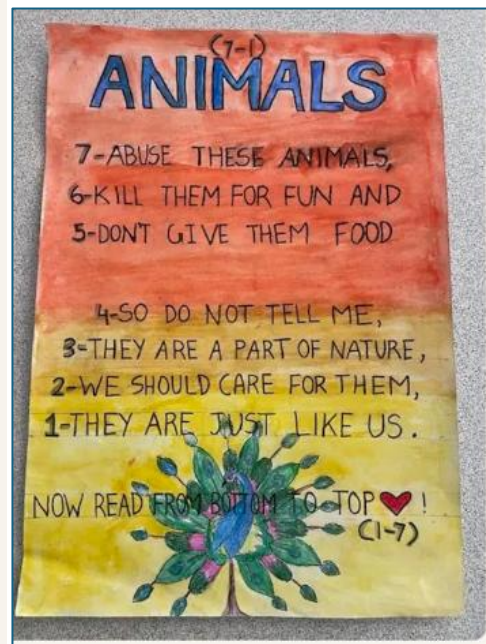 (7-1)
ANIMALS
7-ABUSE THESE ANIMALS,
6-KILL THEM FOR FUN AND
5-DON'T GIVE THEM FOOD
4-SO DO NOT TELL ME,
3-THEY ARE A PART OF NATURE,
2-WE SHOULD CARE FOR THEM,
1-THEY ARE JUST LIKE US.
NOW READ FROM BOTTOM TO TOP ❤ !
(1-7)